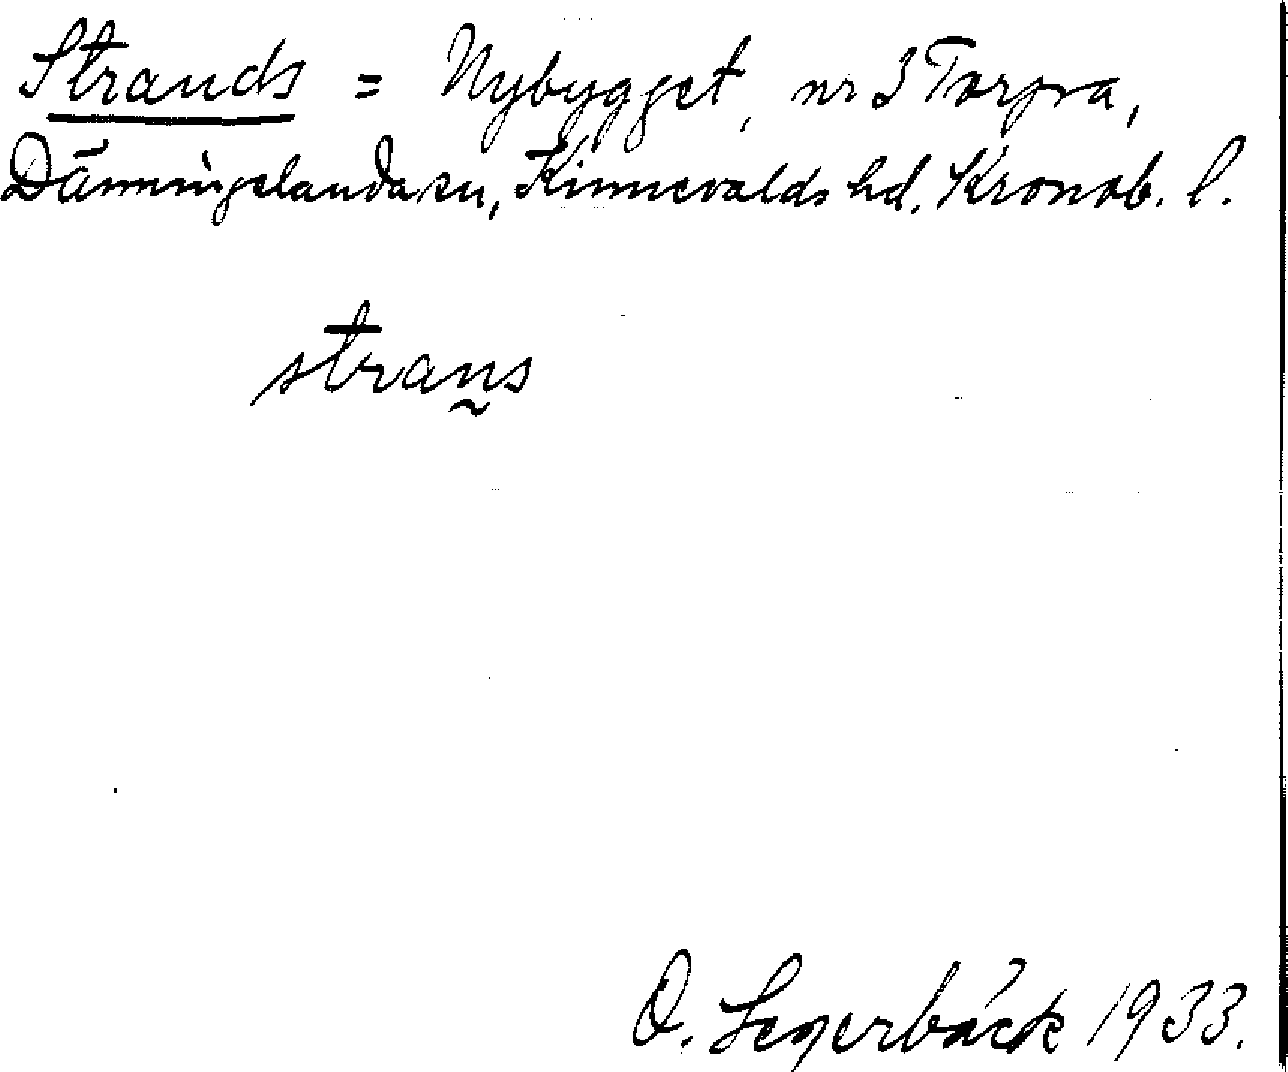 Strands = Nybygget, nr 3 Torpra,
Dänningelanda sn, Kinnevalds hd. Kronob. l.
stran̰s
O. Segerbäck 1933.